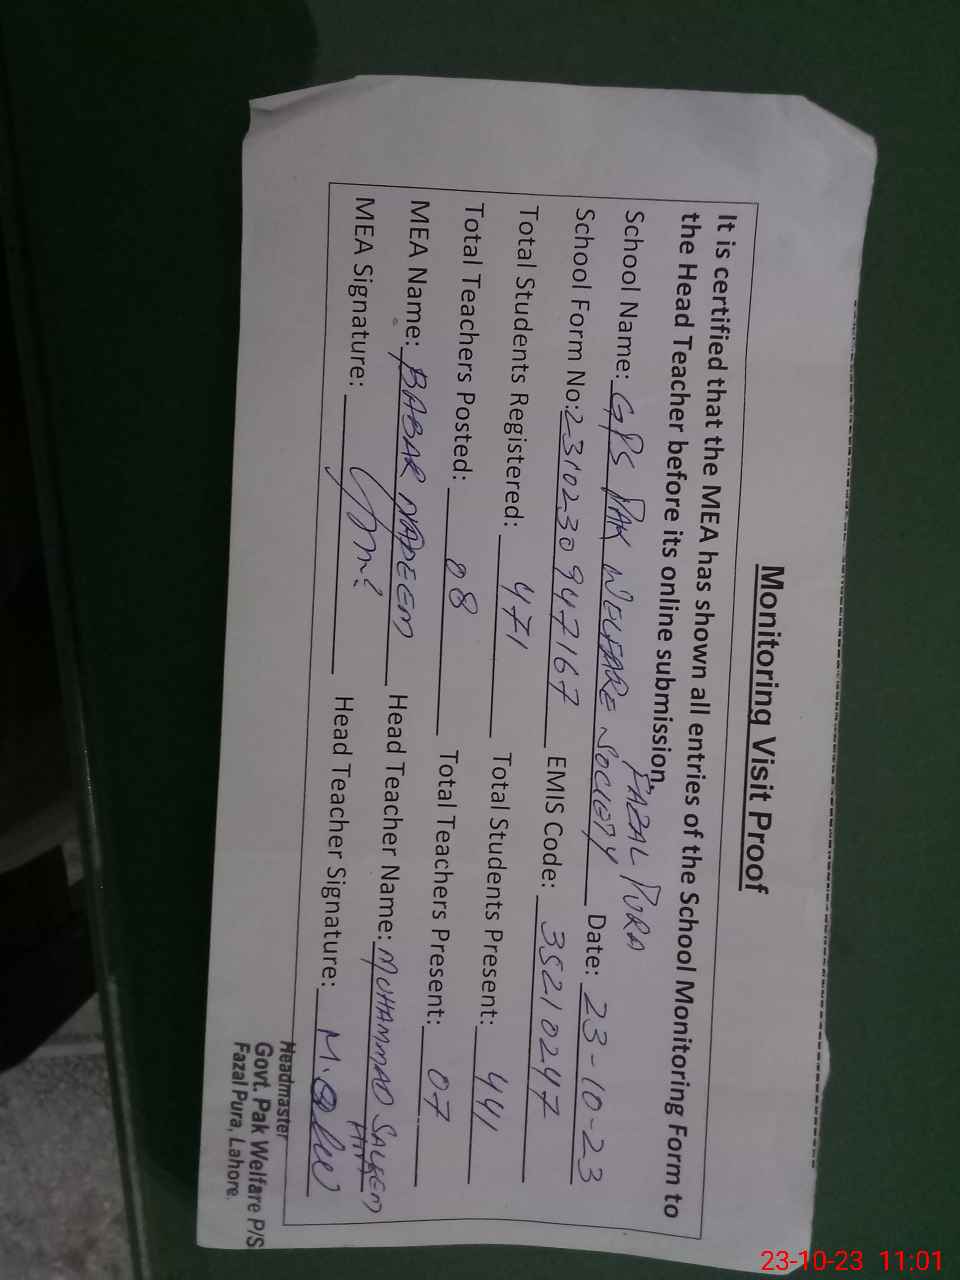 Monitoring Visit Proof
It is certified that the MEA has shown all entries of the School Monitoring Form to
the Head Teacher before its online submission.
FAZAL PURA
School Name: GPS PAK WELFARE SOCIETY Date: 23-10-23
School Form No:2310230947167 EMIS Code: 35210247
Total Students Registered: 471 Total Students Present: 441
Total Teachers Posted: 08 Total Teachers Present: 07
MEA Name: BABAR NADEEM Head Teacher Name: MUHAMMAD SALEEM
MEA Signature: Head Teacher Signature:
Headmaster
Govt. Pak Welfare P/S
Fazal Pura, Lahore.
23-10-23 11:01